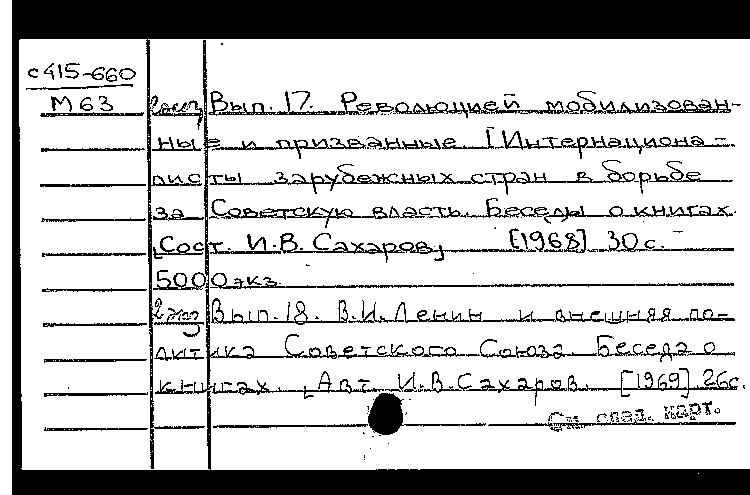 с415-660
М63
2экз Вып. 17. Революцией мобилизован-
ные и призванные [Интернациона-
листы зарубежных стран в борьбе
за Советскую власть. Беседы о книгах.
[Сост. И.В. Сахаров] [1968] 30 с.
5000 экз.
2 экз Вып. 18. В.И. Ленин и внешняя по-
литика Советского Союза. Беседа о
книгах. [Авт И.В. Сахаров. [1969] 26с.
См след. карт.